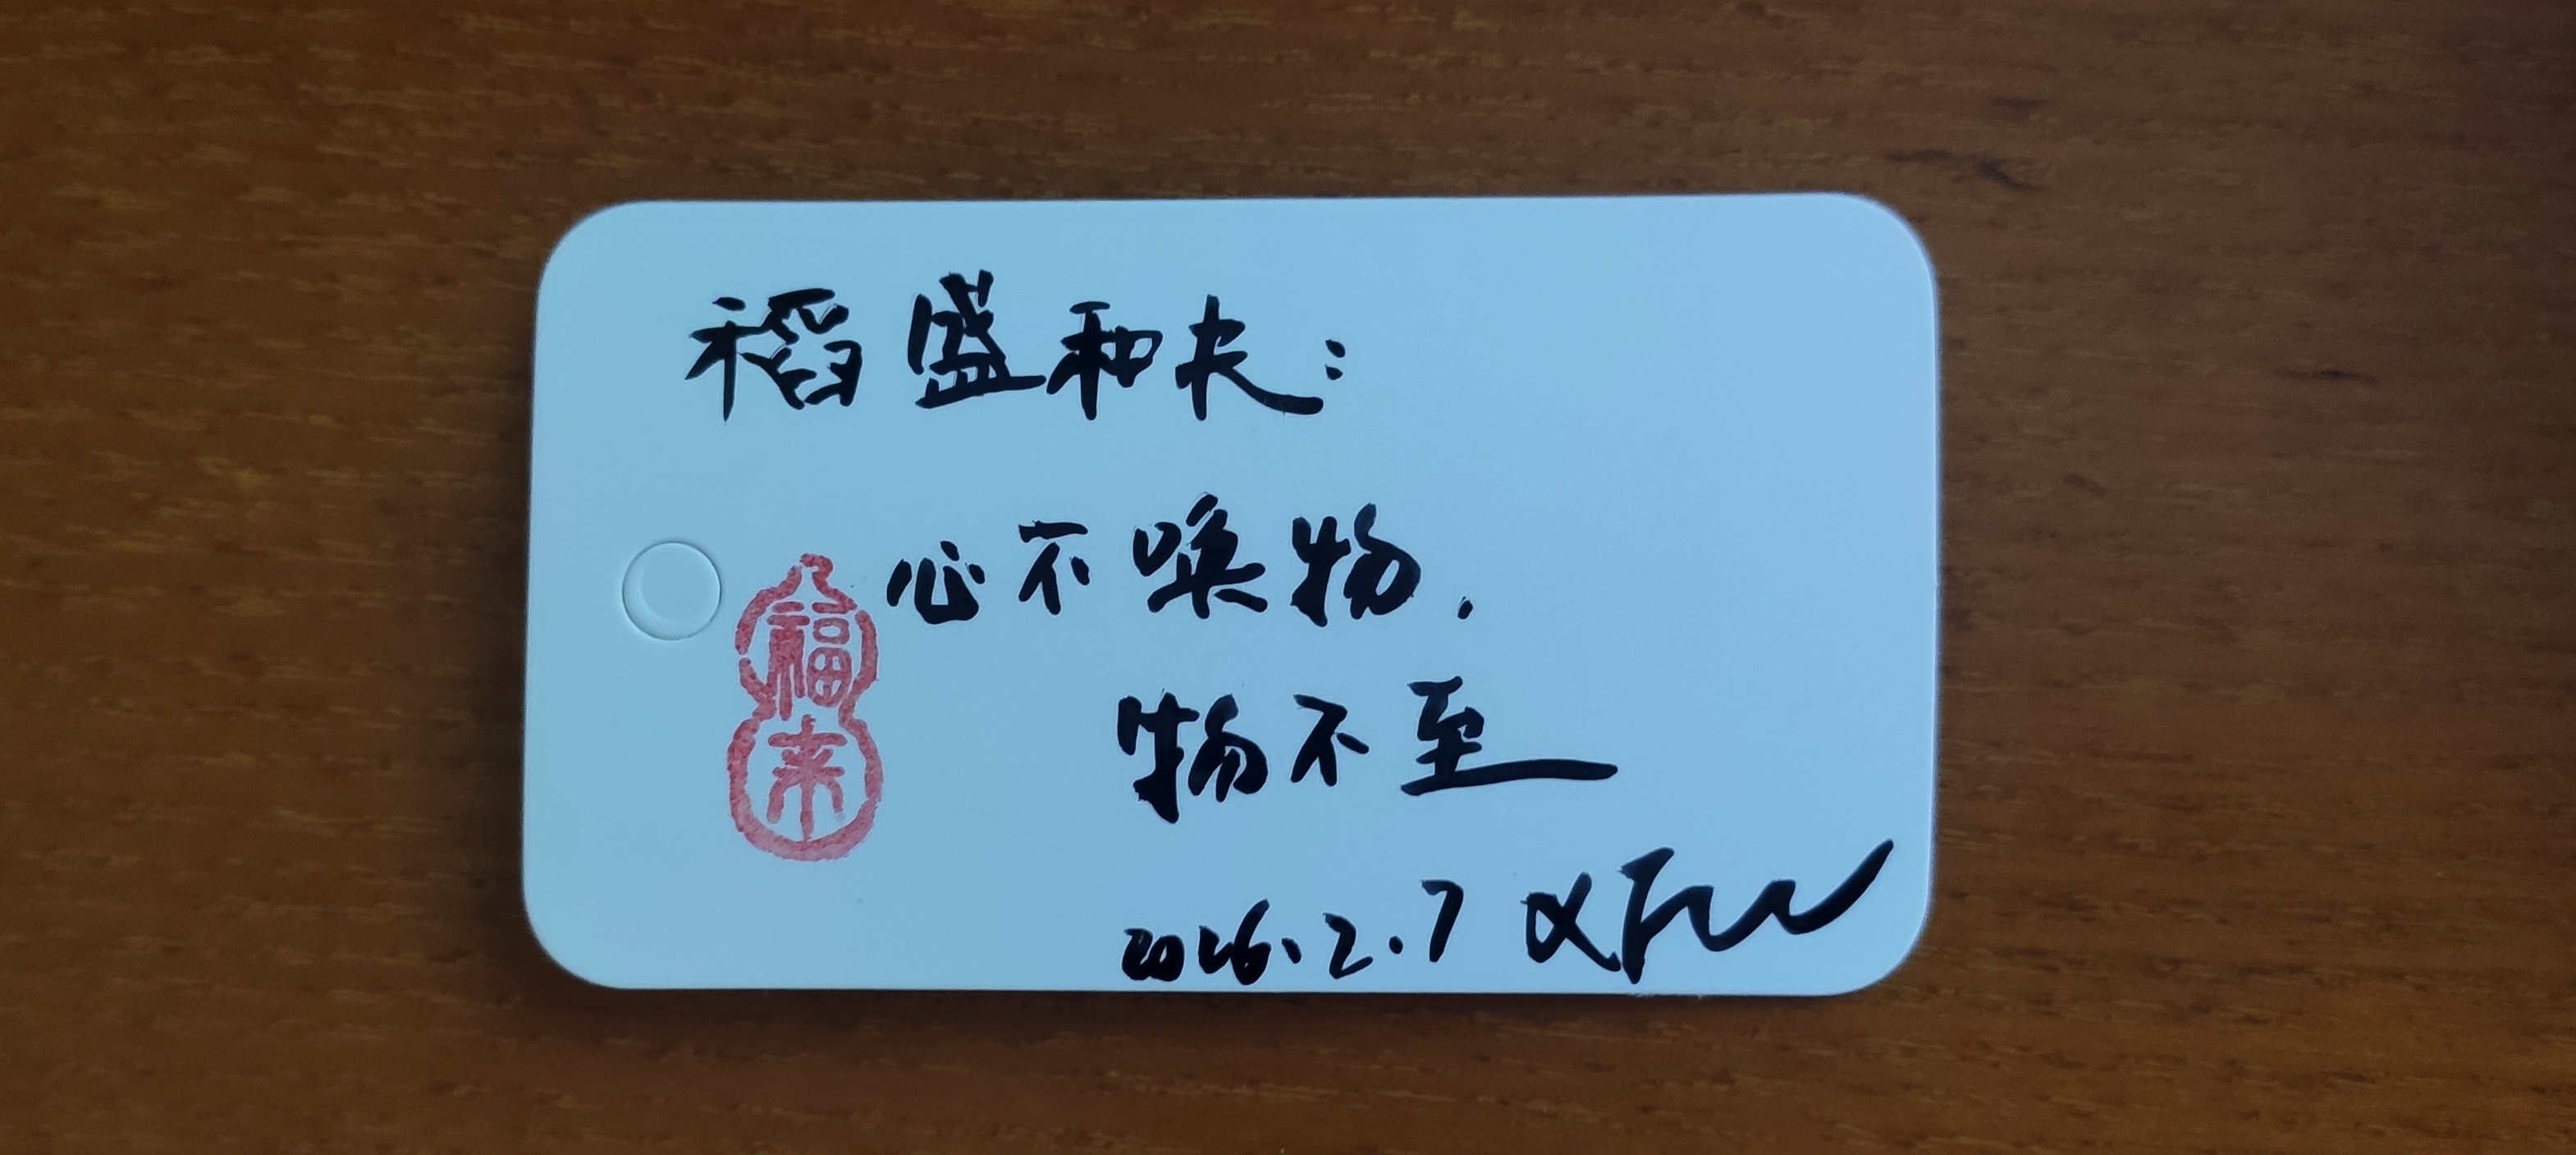 稻盛和夫：
心不唤物.
物不至
福来
2026.2.7